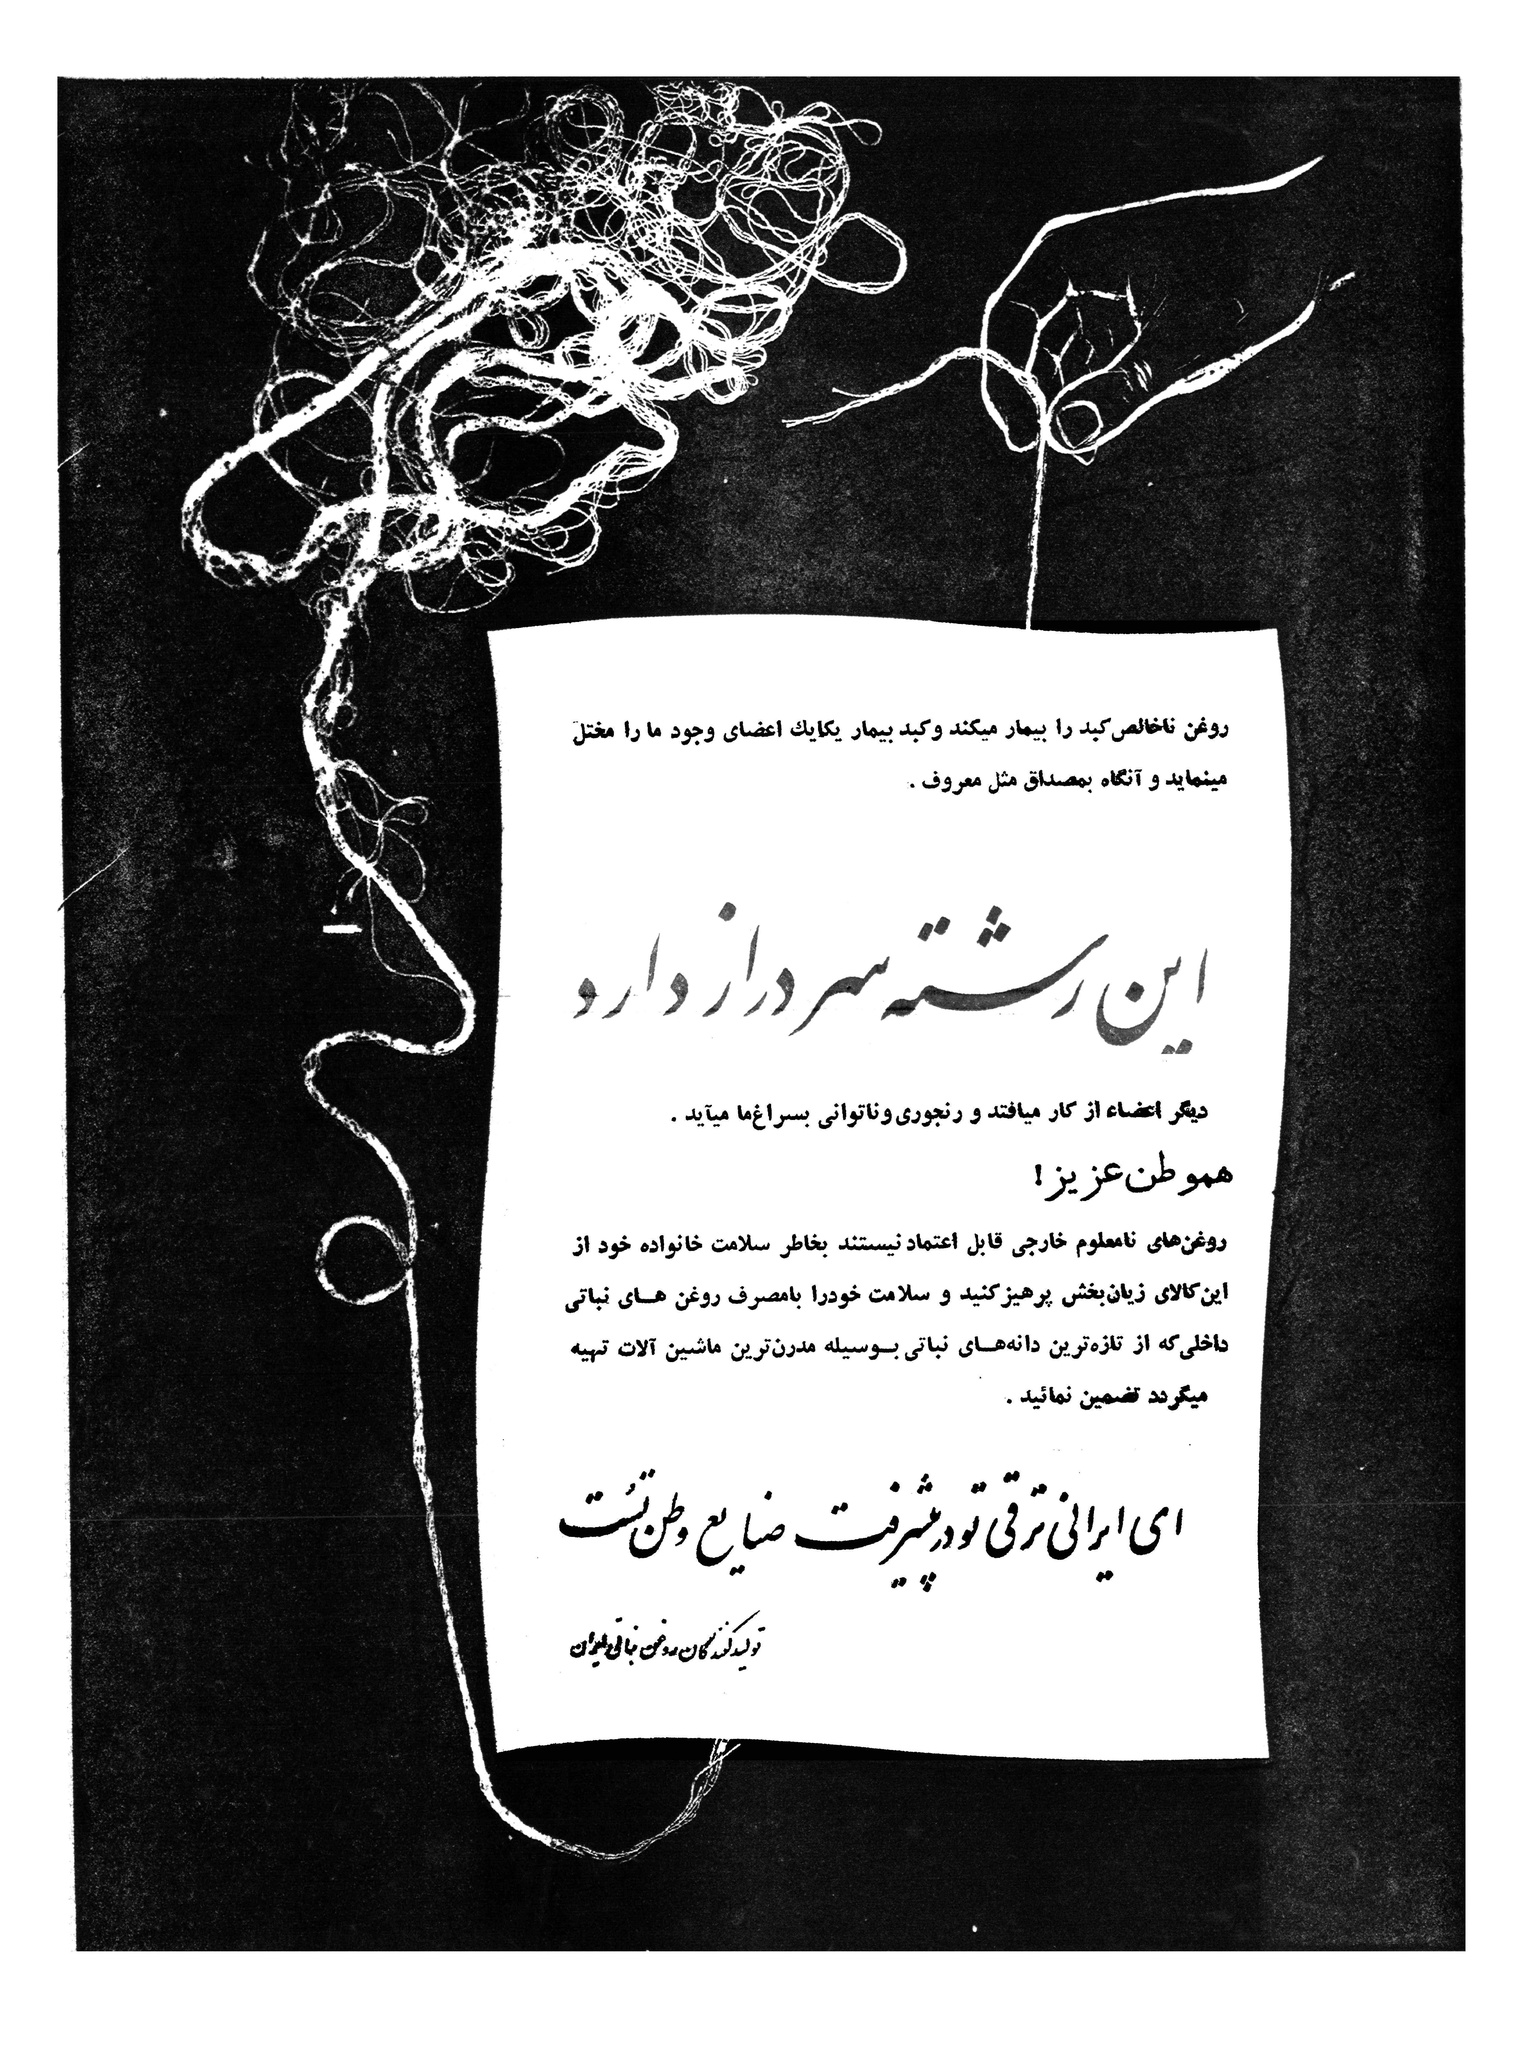 روغن ناخالص کبد را بیمار میکند و کبد بیمار یکایك اعضای وجود ما را مختل
مینماید و آنگاه بمصداق مثل معروف .
این رشته سر دراز دارد
دیگر اعضاء از کار میافتد و رنجوری و ناتوانی بسراغ ما میآید .
هموطن عزیز !
روغن‌های نامعلوم خارجی قابل اعتماد نیستند بخاطر سلامت خانواده خود از
این کالای زیان‌بخش پرهیز کنید و سلامت خودرا بامصرف روغن هــای نباتی
داخلی که از تازه‌ترین دانه‌هــای نباتی بــوسیله مدرن‌ترین ماشین آلات تهیه
میگردد تضمین نمائید .
ای ایرانی ترقی تو در پیشرفت صنایع وطن تست
تولید کنندگان روغن نباتی ایران